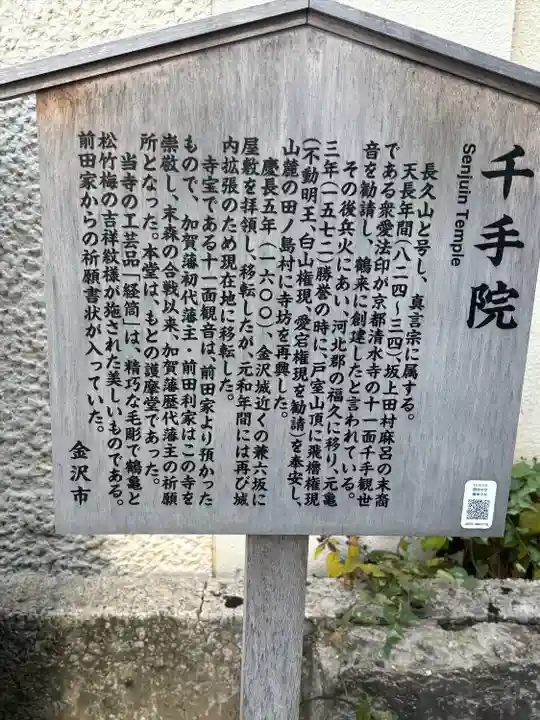 千手院
Senjuin Temple
長久山と号し、真言宗に属する。
天長年間(八二四〜三四)、坂上田村麻呂の末裔
である衆愛法印が京都清水寺の十一面千手観世
音を勧請し、鶴来に創建したと言われている。
その後兵火にあい、河北郡の福久に移り、元亀
三年(一五七二)勝誉の時に、戸室山頂に飛檜権現
(不動明王、白山権現、愛宕権現を勧請)を奉安し、
山麓の田ノ島村に寺坊を再興した。
慶長五年(一六〇〇)、金沢城近くの兼六坂に
屋敷を拝領し、移転したが、元和年間には再び城
内拡張のため現在地に移転した。
寺宝である十一面観音は、前田家より預かった
もので、加賀藩初代藩主・前田利家はこの寺を
崇敬し、末森の合戦以来、加賀藩歴代藩主の祈願
所となった。本堂は、もとの護摩堂であった。
当寺の工芸品「経筒」は、精巧な毛彫で鶴亀と
松竹梅の吉祥紋様が施された美しいものである。
前田家からの祈願書状が入っていた。
金沢市